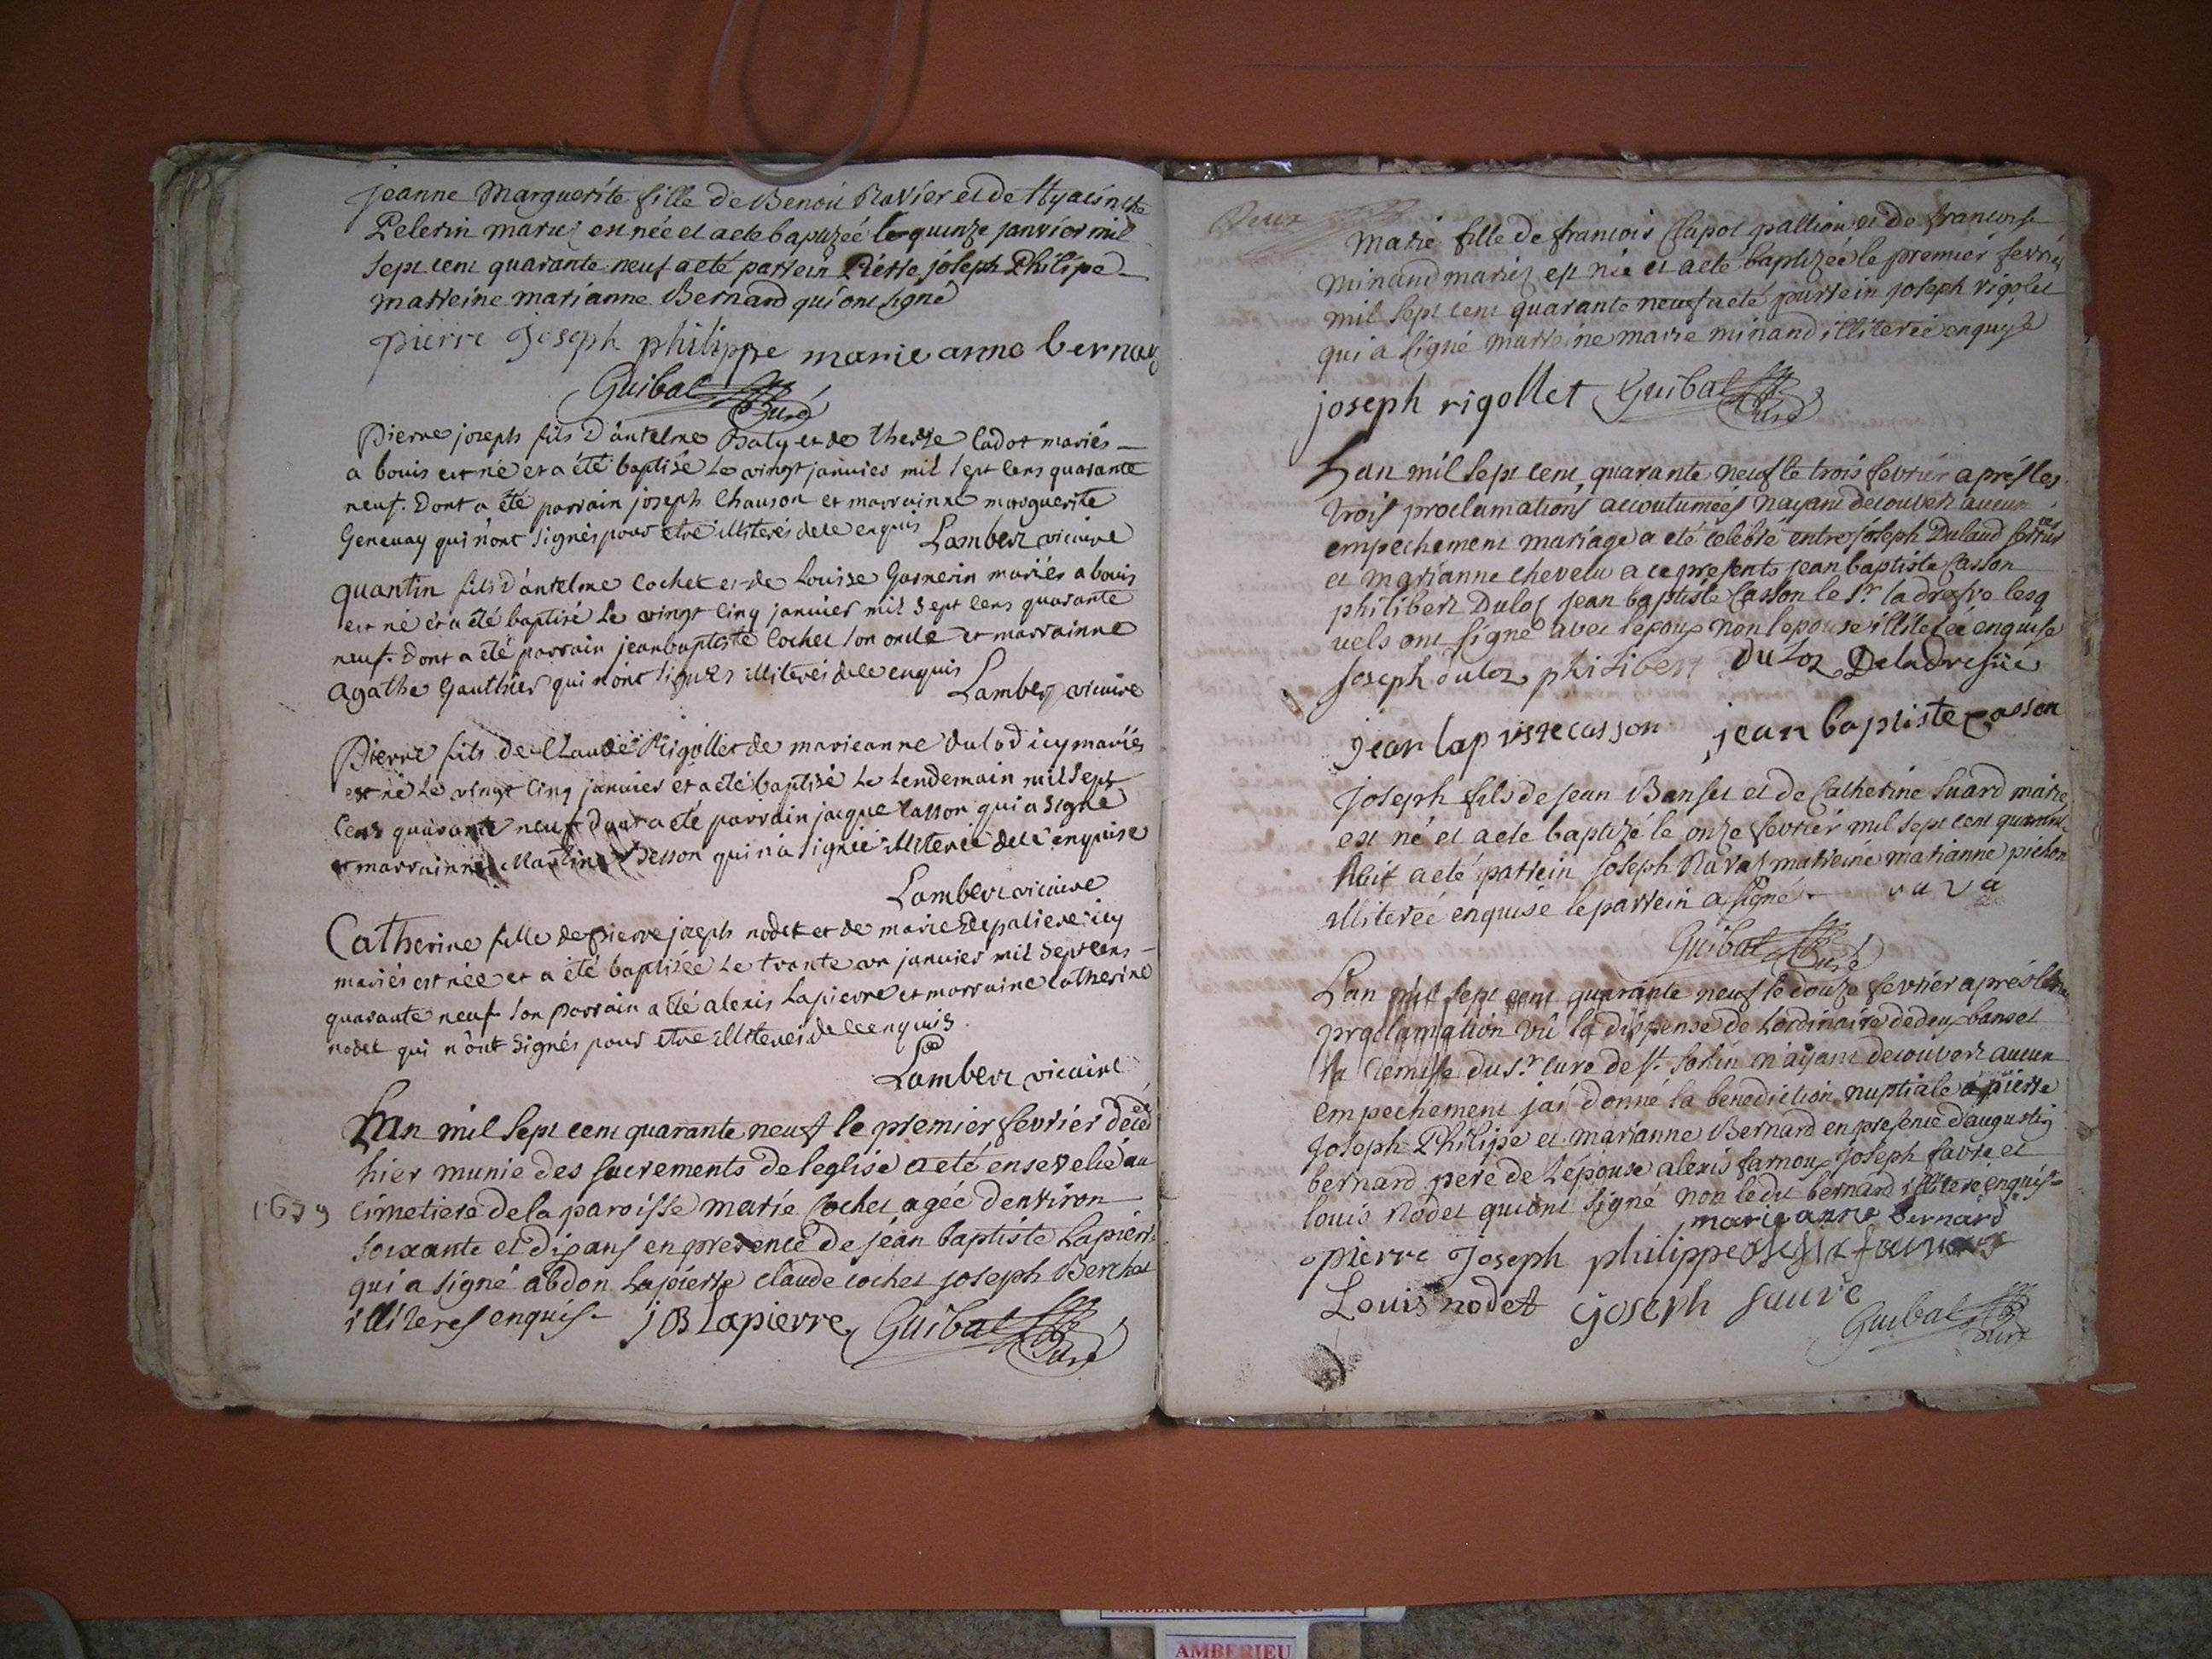 jeanne Marguerite fille de Benoit Ravier et de Hyacinthe
Pelerin mariez est née et a ete baptizeé le quinze janvier mil
sept cent quarante neuf a eté parrein Pierre joseph Philipe
marreine marianne Bernard qui ont signé
pierre Joseph philippe marie anne bernar
Guibal Curé
Pierre joseph fils d'antelme Baty et de therese Cadot mariés
a bouis est né et a été baptisé Le vingt janvies mil sept cens quarante
neuf. Dont a été parrain joseph Chauson et marrainne marguerite
Genevay qui n'ont signés pour etre illiterés de ce enquis Lambert vicaire
quantin fils d'antelme Cochet et de Louise Garnerin mariés a bouis
est né et a été baptisé Le vingt cinq janvier mil sept cens quarante
neuf. Dont a été parrain jeanbaptiste Cochet son oncle et marrainne
agathe Gauthier qui n'ont signés illiterés de ce enquis Lambert vicaire
Pierre fils de Claude Rigollet de marieanne dulod icy mariés
est né Le vingt cinq janvier et a été baptisé Le Lendemain mil sept
Cens quarante neuf dont a été parrain jacque Casson qui a signé
et marrainne Martine Besson qui n'a signée illiterée de ce enquise
Lambert vicaire
Catherine fille de pierre joseph nodet et de marie Depaliere icy
mariés est née et a été baptisée Le trente un janvier mil sept cens
quarante neuf son parrain a été alexis Lapierre et marraine Catherine
nodet qui n'ont signés pour etre illiterés de ce enquis
Lambert vicaire
Lan mil sept cent quarante neuf le premier fevrier decedeé
hier munie des sacrements de leglise a eté ensevelie au
1679 cimetiere de la paroisse marie Cochet agée denviron
soixante et dix ans en presence de jean baptiste Lapierre
qui a signé abdon Lapierre claude cochet joseph Berchet
illiteres enquis JB Lapierre Guibal Curé
Marie fille de francois Clapot pallion et de francoise
minand mariez est née et a eté baptizée le premier fevrier
mil sept cent quarante neuf a eté parrein joseph rigolet
qui a signé marreine marie minand illitereé enquyse
joseph rigollet Guibal Curé
Lan mil sept cent quarante neuf le trois fevrier aprés les
trois proclamations accoutumées nayant decouvert aucun
empechement mariage a eté celebré entre joseph Dulaud
et marianne chevelu a ce presents jean baptiste Casson
philibert Duloz jean baptiste Casson le Sr. ladresve lesq
uels ont signé avec lepoux non lepouse illitereé enquise
joseph duloz philibert duloz Deladresüe
jean bap tiste casson jean baptiste casson
Joseph fils de jean Banset et de Catherine Suard mariez
est né et a ete baptizé le onze fevrier mil sept cent quarante
neuf a eté parrein joseph Ravas marreine marianne pichon
illitereé enquise le parrein a signé rava
Guibal Curé
Lan mil sept cent quarante neuf le douze fevrier aprés
proclamation vû la dispense de lordinaire de deux bans et
la remise du Sr. curé de St. Sorlin n'ayant decouvert aucun
empechement jai donné la benediction nuptiale a pierre
joseph Philipe et marianne Bernard en presence d'augustin
bernard pere de l'épouse alexis farnoux joseph favre et
louis Nodet qui ont signé non ledit bernard illitere enquis
marie anne bernard
pierre Joseph philippe
Louis nodet joseph fauvre
Guibal Curé
AMBERIEU